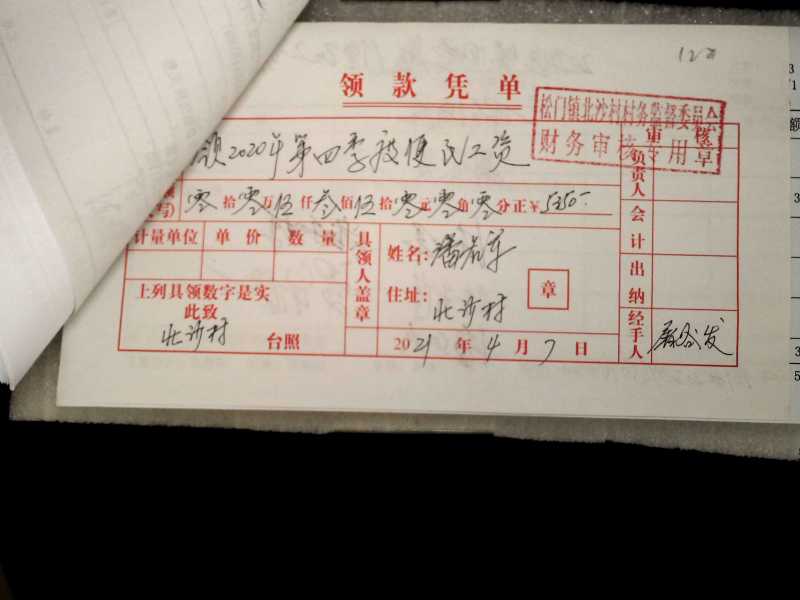 领款凭单
松门镇北沙村村务监督委员会
财务审核专用章
领2020年第四季度便民工资
审核
负责人
零拾零万伍仟叁佰伍拾零元零角零分正￥5350-
会计
计量单位 单价 数量
具领人盖章
姓名:潘
住址:北沙村
章
出纳
上列具领数字是实
此致
北沙村 台照
2021年4月7日
经手人